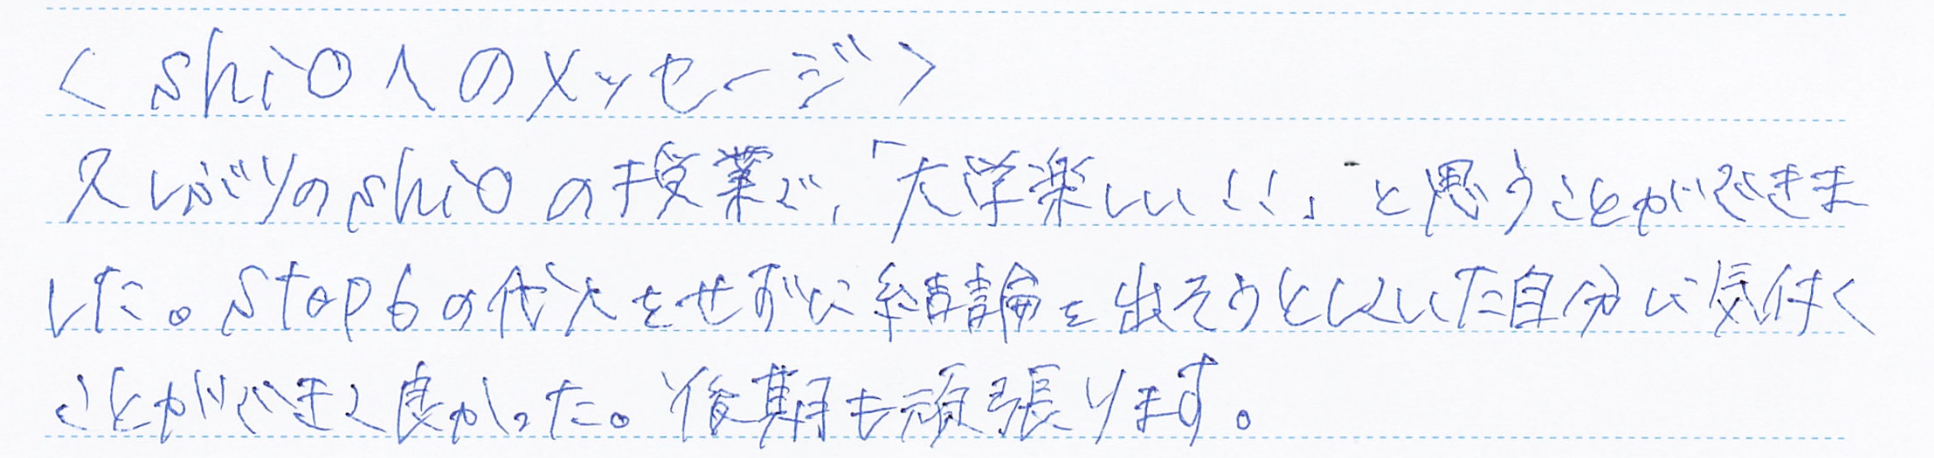 ＜shioへのメッセージ＞
久しぶりのshioの授業で、「大学楽しい!!」と思うことができま
した。Step6の代入をせずに結論を出そうとしていた自分に気付く
ことができて良かった。後期も頑張ります。